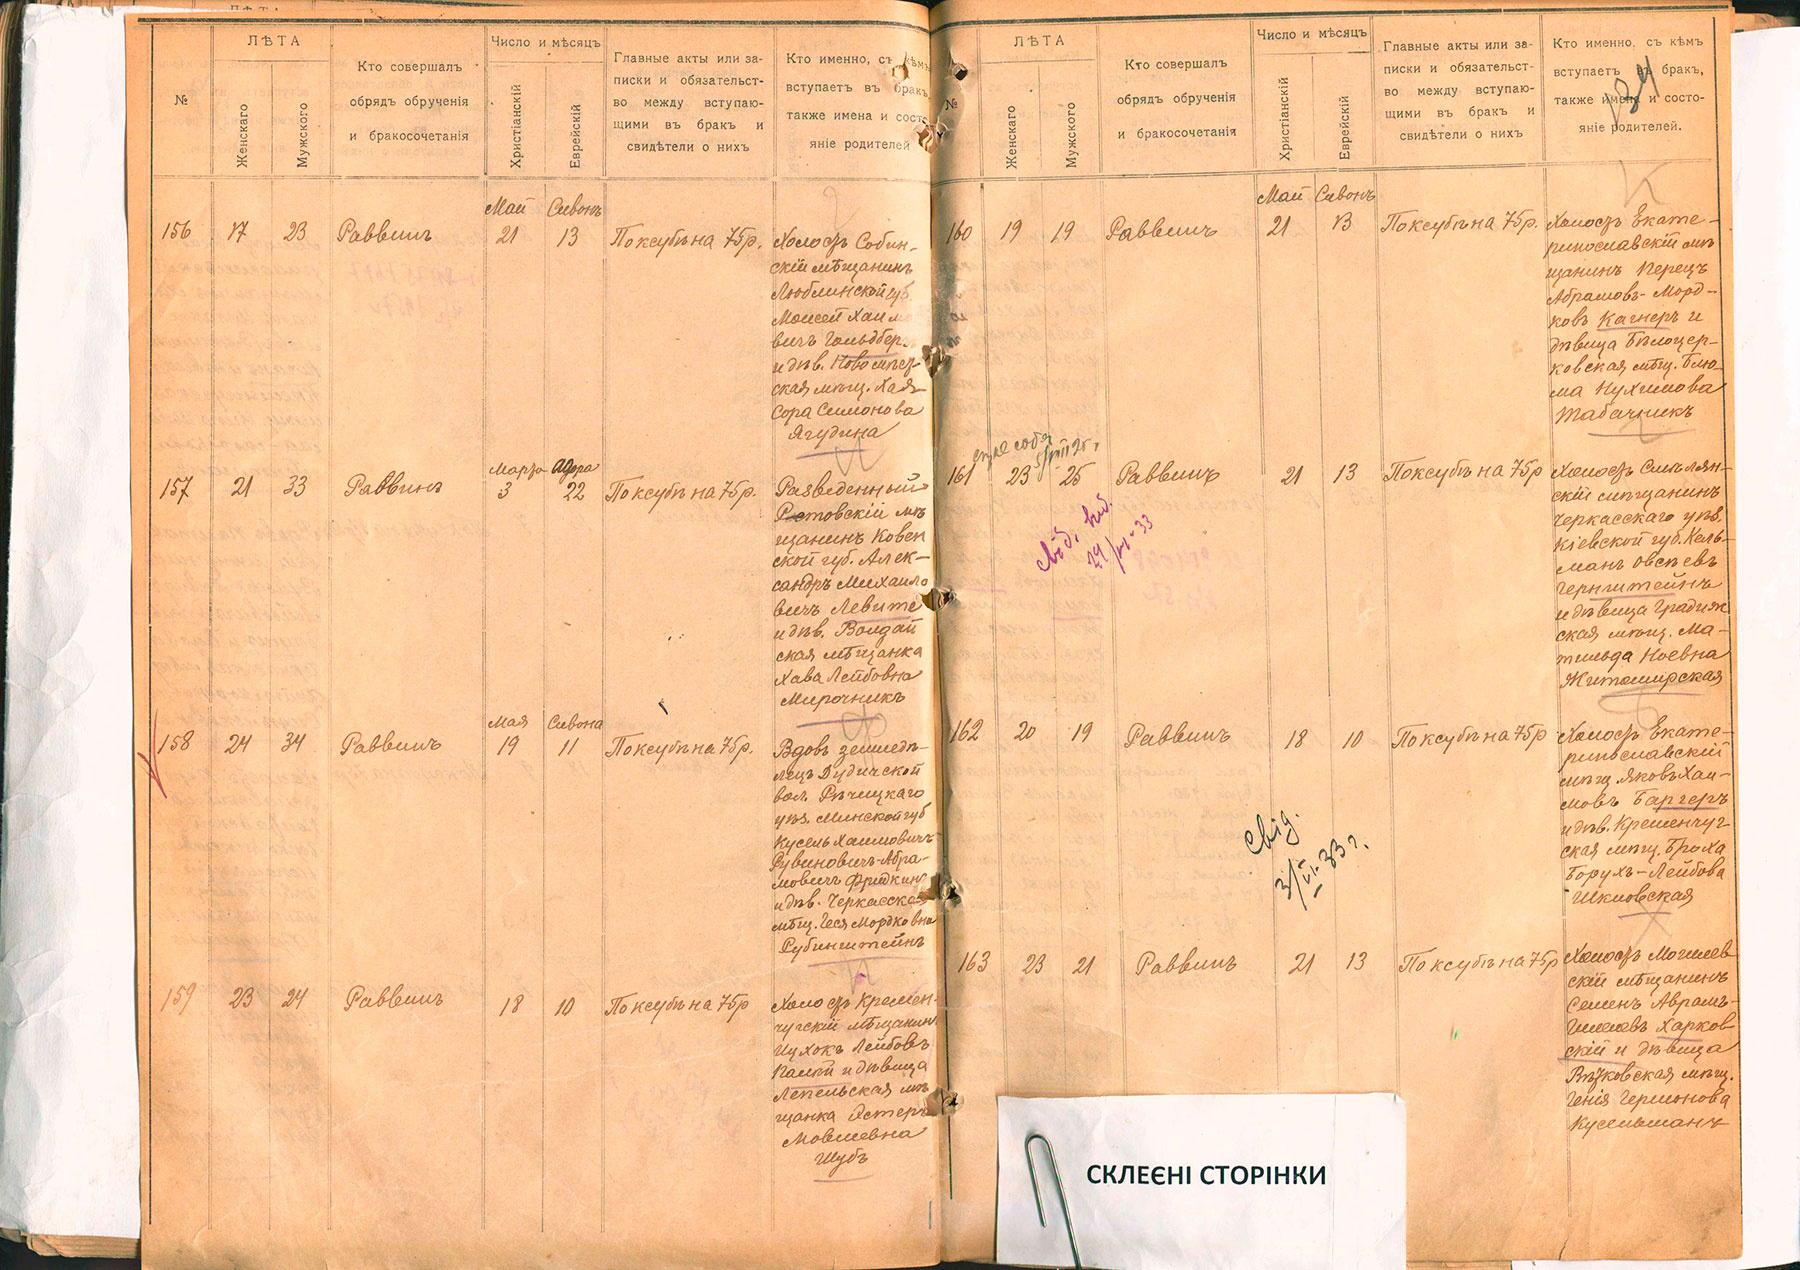 №
ЛѢТА
Женскаго
Мужского
Кто совершалъ
обрядъ обрученія
и бракосочетанія
Число и мѣсяцъ
Христіанскій
Еврейскій
Главные акты или за-
писки и обязательст-
во между вступаю-
щими въ бракъ и
свидѣтели о нихъ
Кто именно, съ кѣмъ
вступаетъ въ бракъ,
также имена и состо
яніе родителей
Май Сивонъ
156 17 23 Раввинъ 21 13 По ксубѣ на 75р.
Холостъ Собин-
скій мѣщанинъ
Люблинской губ.
Моисей Хаимо
вичъ Гольдбер.
и дѣв.
ская мѣщ. Хая
Сора Симонова
Ягудина
Марта адора
157 21 33 Раввинъ 3 22 По ксубѣ на 75р.
Разведенный
мѣ
щанинъ Ковен
ской губ. Алек-
сандръ Михаило
вичъ Левитъ
и дѣв. Волдай
ская мѣщанка
Хава Лейбовна
Мирочникъ
Мая Сивона
158 24 34 Раввинъ 19 11 По ксубѣ на 75р.
Вдовъ земледѣ-
лецъ Дудичской
вол. Рѣчицкаго
уѣз. Минской губ
Кусель Хаимовичъ
Рувиновичъ-Абра-
мовичъ Фридкинъ
и дѣв. Черкасская
мѣщ. Геся Мордковна
Рубинштейнъ
159 23 24 Раввинъ 18 10 По ксубѣ на 75р
Холостъ Кремен-
чугскій мѣщанин
Ицхокъ Лейбовъ
и дѣвица
Лепельская мѣ
щанка Эстеръ
Мовшевна
Шубъ
№
ЛѢТА
Женскаго
Мужского
Кто совершалъ
обрядъ обрученія
и бракосочетанія
Число и мѣсяцъ
Христіанскій
Еврейскій
Главные акты или за-
писки и обязательст-
во между вступаю-
щими въ бракъ и
свидѣтели о нихъ
Кто именно, съ кѣмъ
вступаетъ въ бракъ,
также имена и состо-
яніе родителей.
134
Май Сивонъ
160 19 19 Раввинъ 21 13 По ксубѣ на 75р.
Холостъ Екате-
ринославскій мѣ
щанинъ Перецъ
Абрамовъ-Морд-
ковъ Кагнеръ и
дѣвица Бѣлоцер-
ковская мѣщ. Блю-
ма Нухимова
Табачникъ
161 23 25 Раввинъ 21 13 По ксубѣ на 75р
Холостъ Смѣлян-
скій мѣщанинъ
Черкасскаго уѣз.
Кіевской губ. Кель-
манъ Овсѣевъ
Гернштейнъ
и дѣвица Градиж
ская мѣщ. Ма-
тильда Ноевна
Житомирская
29/VI-33
162 20 19 Раввинъ 18 10 По ксубѣ на 75р
Холостъ Екате-
ринославскій
мѣщ. Яковъ Хаи-
мовъ Баргеръ
и дѣв. Кременчуг-
ская мѣщ. Броха
Борухъ-Лейбова
Шкловская
свід.
3/VI-33 г.
163 23 21 Раввинъ 21 13 По ксубѣ на 75р
Холостъ Могилев
скій мѣщанинъ
Семенъ Аврамъ-
Гилелевъ Харков
скій и дѣвица
мѣщ.
Генія Гермонова
Кусельманъ
СКЛЕЄНІ СТОРІНКИ